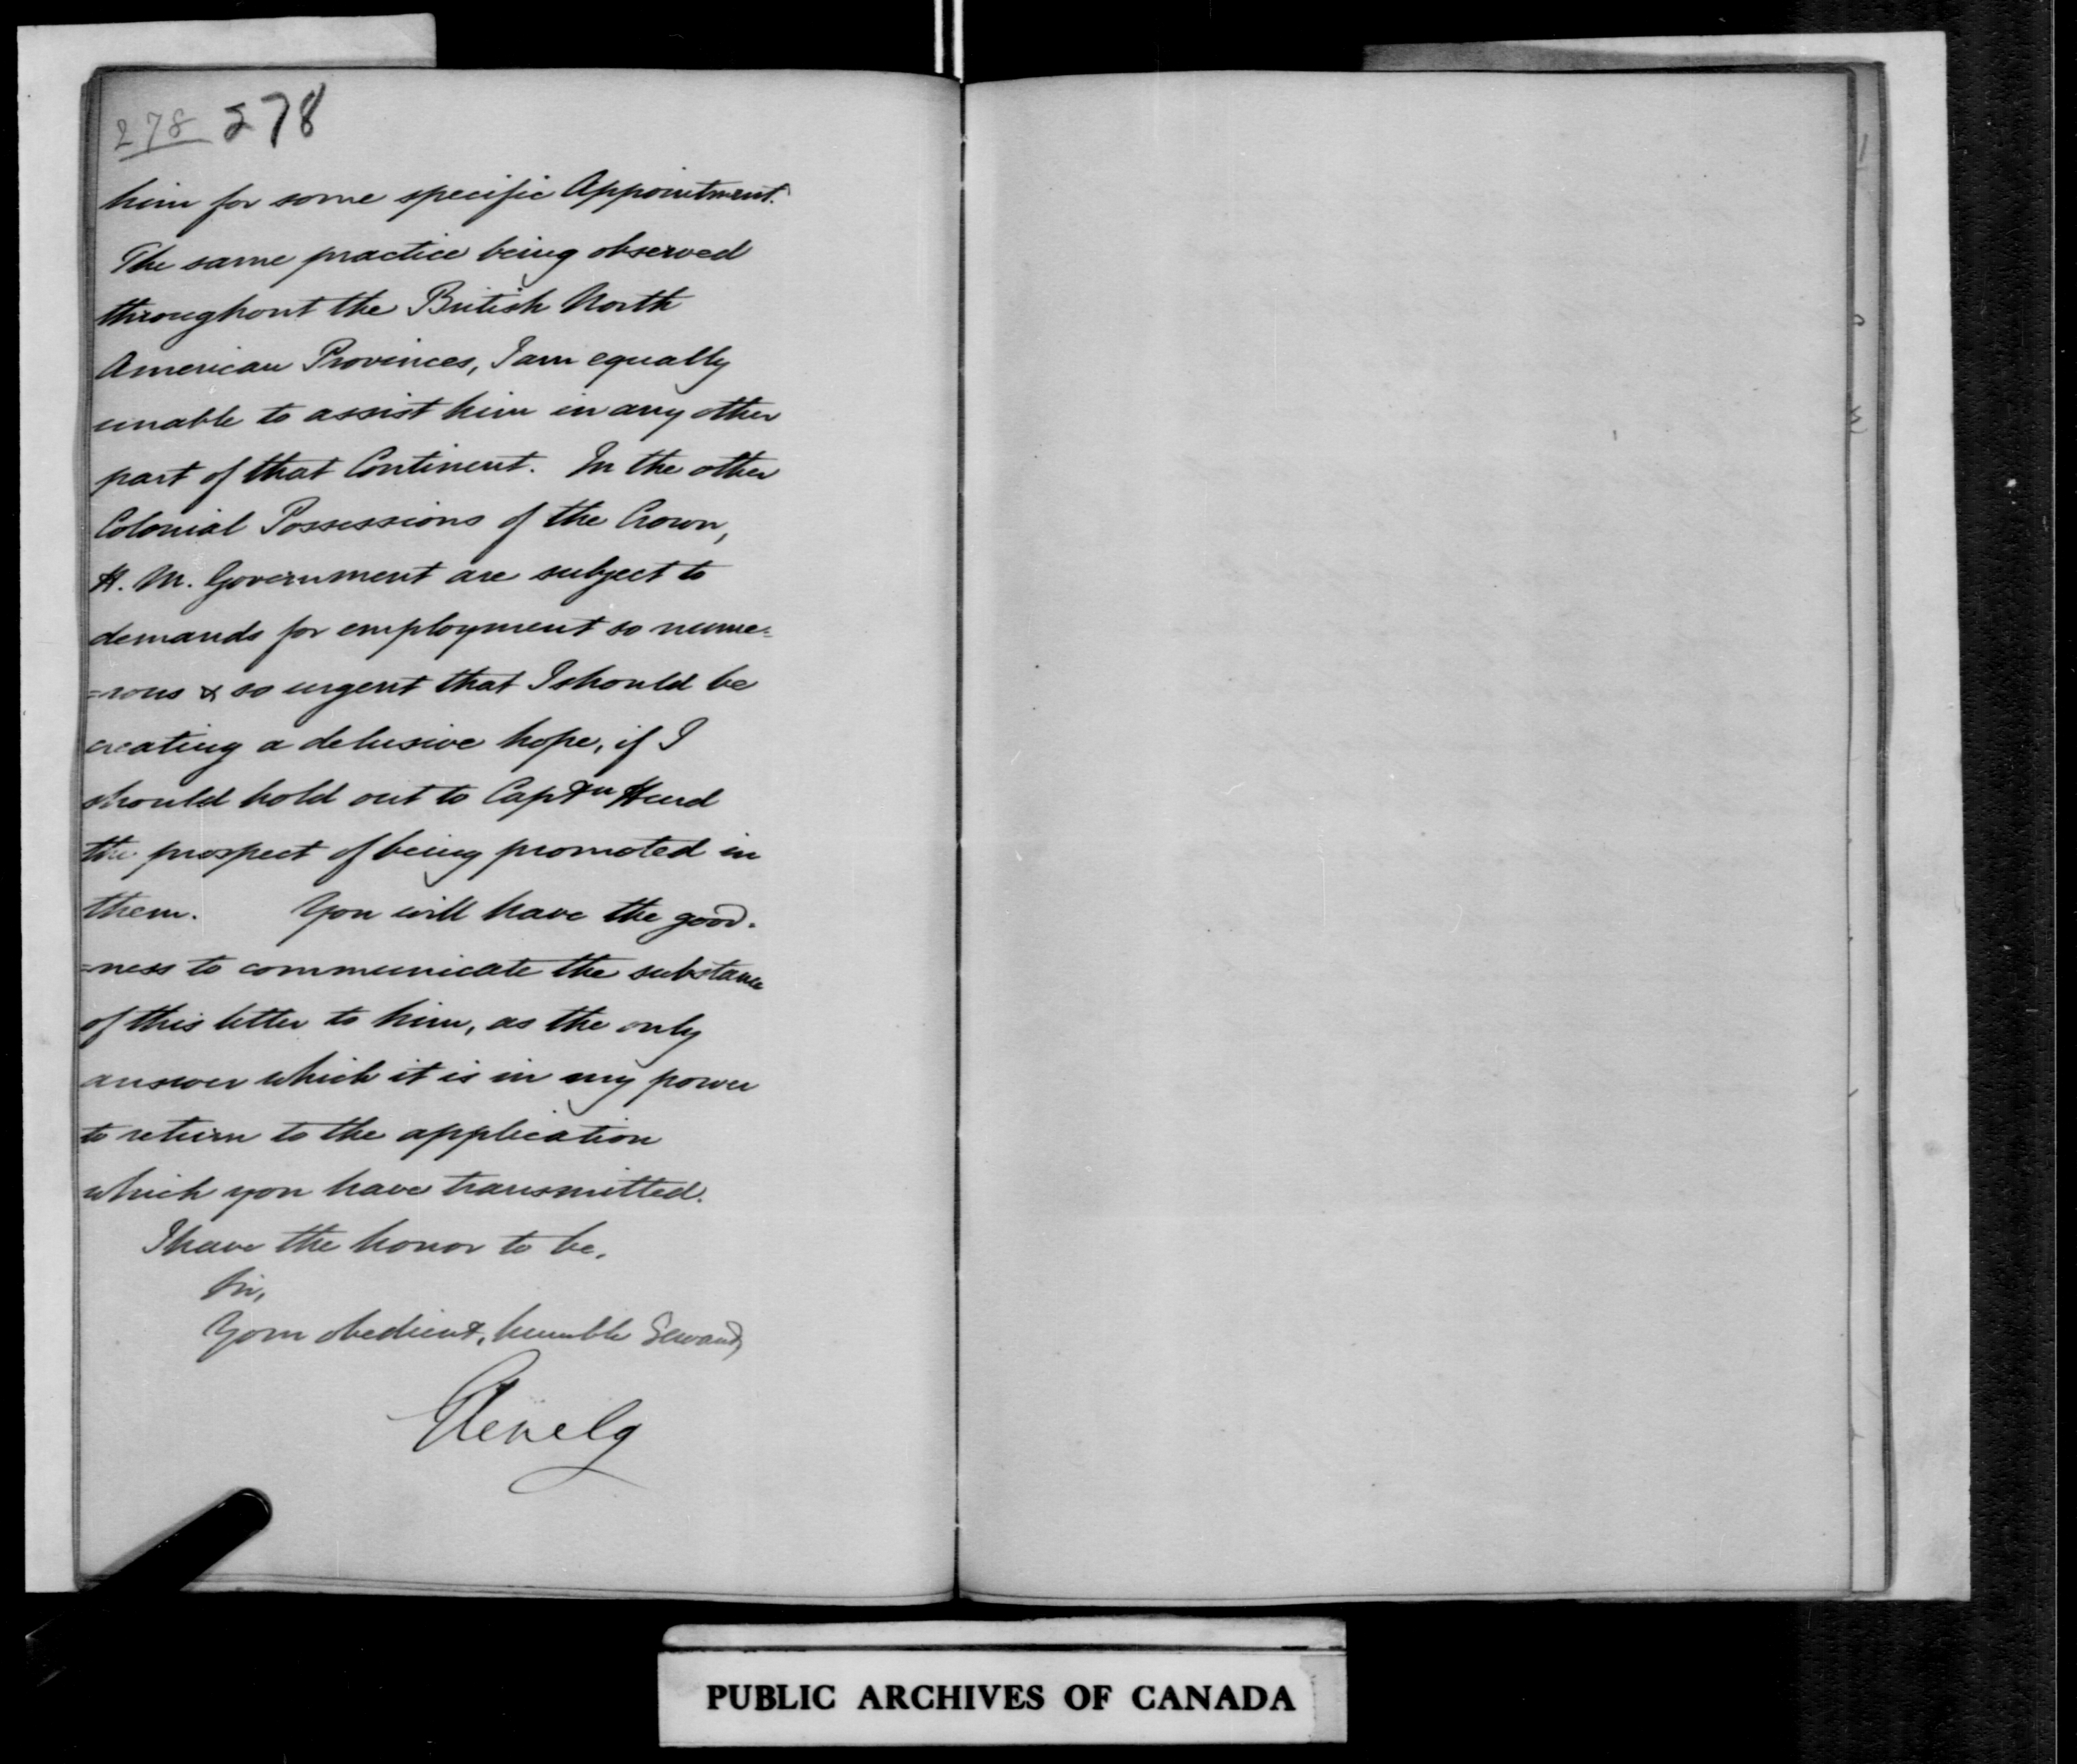 278 278
him for some specific Appointment.
The same practice being observed
throughout the British North
American Provinces, I am equally
unable to assist him in any other
part of that Continent. In the other
Colonial Possessions of the Crown,
H. M. Government are subject to
demands for employment so nume=
=rous & so urgent that I should be
creating a delusive hope, if I
should hold out to Captn Hurd
the prospect of being promoted in
them. You will have the good=
=ness to communicate the substance
of this letter to him, as the only
answer which it is in my power
to return to the application
which you have transmitted.
I have the honor to be,
Sir,
Your obedient, humble Servant,
Glenelg
PUBLIC ARCHIVES OF CANADA